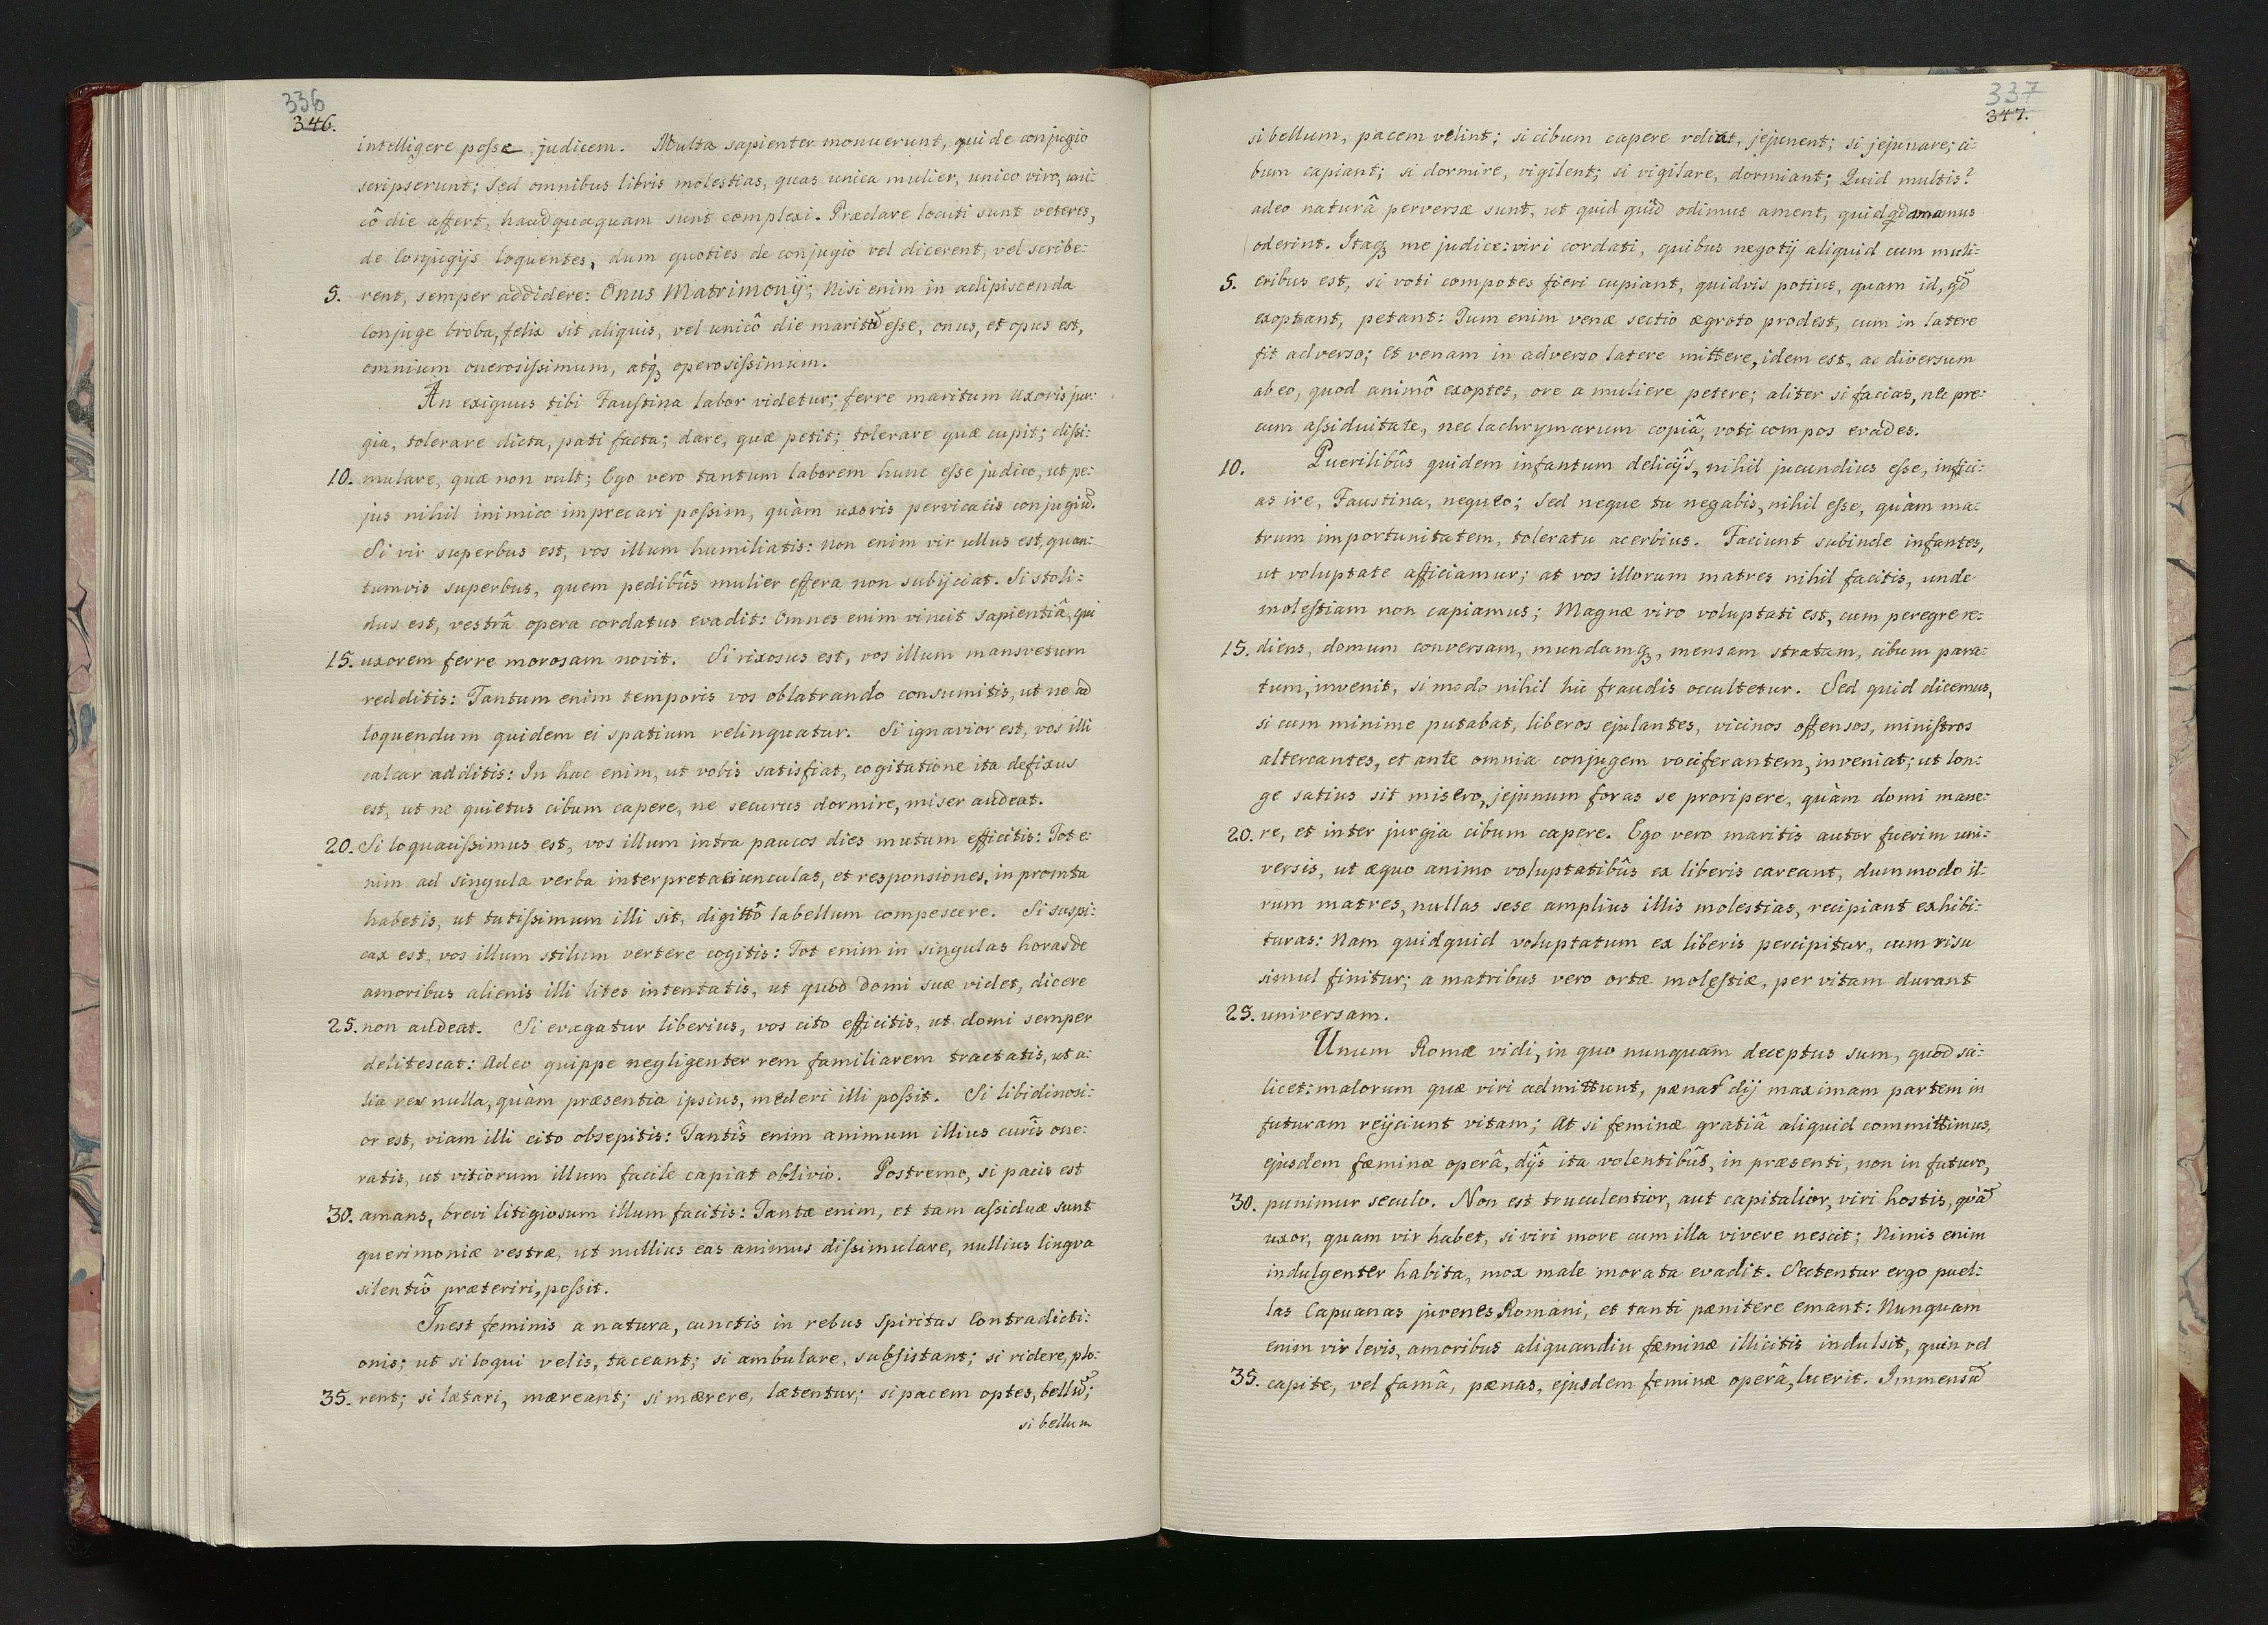 336
346.
intelligere posse judicem. Multa sapienter monuerunt, qui de conjugio
scripserunt; Sed omnibus libris molestias, quas unica mulier, unico viro, uni:
cô die affert, haudquaquam sunt complexi. Præclare locuti sunt veteres,
de Conjugijs loquentes, dum quoties de conjugio vel dicerent, vel scribe:
5. rent, semper addidere: Onus Matrimonij; Nisi enim in adipiscenda
Conjuge broba, felix sit aliquis, vel unicô die maritũ esse, onus, et opus est,
omnium onerosissimum, atq́ꝫ operosissimum.
An exiguus tibi Faustina labor videtur; ferre maritum uxoris jur:
gia, tolerare dicta, pati facta; dare, quæ petit; tolerare quæ cupit; dissi:
10. mulare, quæ non vult; Ego vero tantum laborem hunc esse judico, ut pe:
jus nihil inimico imprecari possim, quàm uxoris pervicacis conjugiũ.
Si vir superbus est, vos illum humiliatis: Non enim vir ullus est, quan:
tumvis superbus, quem pedibûs mulier effera non subijciat. Si stoli:
dus est, vestrâ opera cordatus evadit: Omnes enim vincit sapientiâ, qui
15. uxorem ferre morosam novit. Si rixosus est, vos illum mansvetum
redditis: Tantum enim temporis vos oblatrando consumitis, ut ne ad
loquendum quidem ei spatium relinquatur. Si ignavior est, vos illi
calcar additis: In hac enim, ut vobis satisfiat, cogitatione ita defixus
est, ut ne quietus cibum capere, ne securus dormire, miser audeat.
20. Si loquacissimus est, vos illum intra paucos dies mutum efficitis: Tot e:
nim ad singula verba interpretaciunculas, et responsiones, in promtu
habetis, ut tutissimum illi sit, digittô labellum compescere. Si suspi:
cax est, vos illum stilum vertere cogitis: Tot enim in singulas horas de
amoribus alienis illi lites intentatis, ut quod domi suæ videt, dicere
25. non audeat. Si evagatur liberius, vos cito efficitis, ut domi semper
delitescat: Adeo quippe negligenter rem familiarem tractatis, ut a:
lia res nulla, quàm præsentia ipsius, mederi illi possit. Si libidinosi:
or est, viam illi cito obsepitis: Tantîs enim animum illius curîs one:
ratis, ut vitiorum illum facile capiat oblivio. Postremo, si pacis est
30. amans, brevi litigiosum illum facitis: Tantæ enim, et tam assiduæ sunt
querimoniæ vestræ, ut nullius eas animus dissimulare, nullius lingva
silentiô præteriri, possit.
Inest feminis a natura, cunctis in rebus Spiritus Contradicti:
onis; ut si loqui velis, taceant; si ambulare, subsistant; si ridere, plo:
35. rent; si lætari, mæreant; si mærere, lætentur; si pacem optes, bellũ;
si bellum
337
347.
si bellum, pacem velint; si cibum capere veliat, jejunent; si jejunare; ci:
bum capiant; si dormire, vigilent; si vigilare, dormiant; Quid multis?
adeo naturâ perversæ sunt, ut quid quid odimus ament, quid qd̃ amamus
oderint. Itaqꝫ me judice: viri cordati, quibus negotij aliquid cum muli:
5. eribus est, si voti compotes fieri cupiant, quidvis potius, quam id, qd̃
exoptant, petant: Tum enim venæ sectio ægroto prodest, cum in latere
fit adverso; Et venam in adverso latere mittere, idem est, ac diversum
ab eo, quod animô exoptes, ore a muliere petere; aliter si facias, nec pre:
cum assiduitate, nec lachrymarum copiâ, voti compos evades.
10. Puerilibûs quidem infantum delicijs, nihil jucundius esse, infici:
as ire, Faustina, nequeo; Sed neque tu negabis, nihil esse, quàm ma:
trum importunitatem, toleratu acerbius. Faciunt subinde infantes,
ut voluptate afficiamur; at vos illorum matres nihil facitis, unde
molestiam non capiamus; Magnæ viro voluptati est, cum peregre re:
15. diens, domum conversam, mundamqꝫ, mensam stratam, cibum para:
tum, invenit, si modo nihil hic fraudis occultetur. Sed quid dicemus,
si cum minime putabat, liberos ejulantes, vicinos offensos, ministros
altercantes, et ante omnia conjugem vociferantem, inveniat; ut lon:
ge satius sit misero, jejunum foras se proripere, quàm domi mane:
20. re, et inter jurgia cibum capere. Ego vero maritis autor fuerim uni:
versis, ut æquo animo voluptatibûs ex liberis careant, dummodo il:
rum matres, nullas sese amplius illis molestias, recipiant exhibi:
turas: Nam quidquid voluptatum ex liberis percipitur, cum risu
simul finitur; a matribus vero ortæ molestiæ, per vitam durant
25. universam.
Unum Romæ vidi, in quo nunquam deceptus sum, quod sci:
licet: malorum quæ viri admittunt, pænaſ dij maximam partem in
futuram reijciunt vitam; At si feminæ gratiâ aliquid committimus,
ejusdem fæminæ operâ, dijs ita volentibûs, in præsenti, non in futuro,
30. punimur seculo. Non est truculentior, aut capitalior, viri hostis, qvã
uxor, quam vir habet, si viri more cum illa vivere nescit; Nimis enim
indulgenter habita, mox male morata evadit. Sectentur ergo puel:
las Capuanas juvenes Romani, et tanti pænitere emant: Nunquam
enim vir levis, amoribus aliquandiu fæminæ illicitis indulsit, quin vel
35. capite, vel famâ, pænas, ejusdem feminæ operâ, luerit. Immensũ